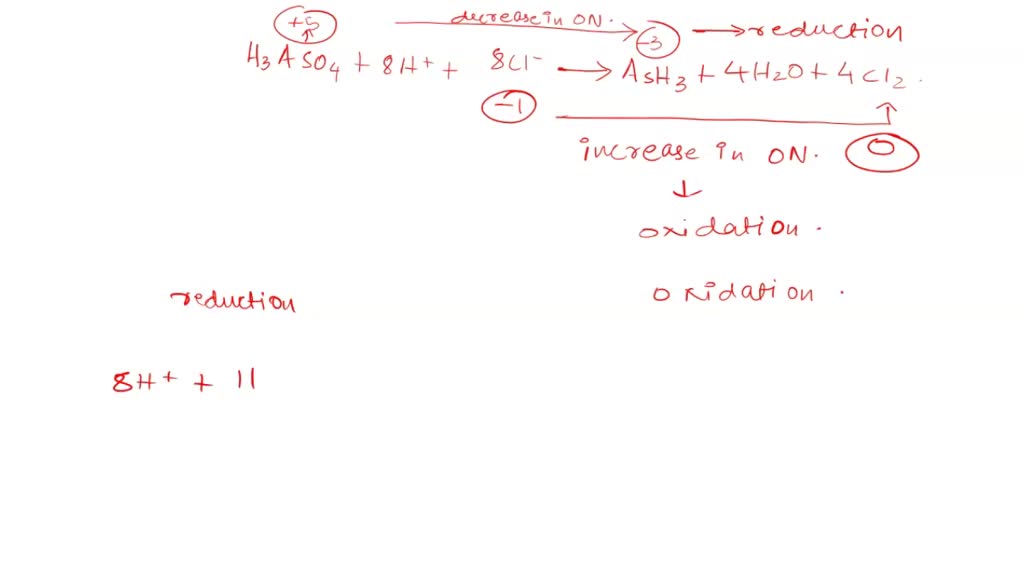 +5 decrease in ON. -3 → reduction
H3AsO4 + 8H+ + 8Cl- → AsH3 + 4H2O + 4Cl2.
-1
increase in ON. 0
↓
oxidation.
reduction oxidation.
8H+ + H